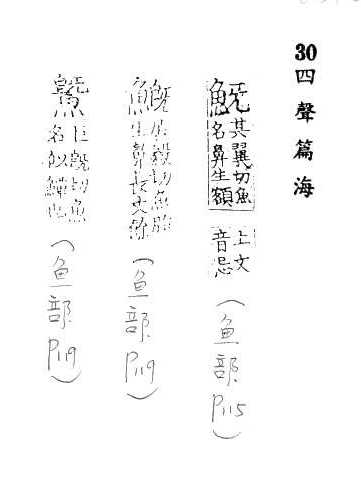 30四聲篇海
其翼切魚
名鼻生額
上文
音忌
(鱼部P115)
毅切魚胎
生鼻長丈餘
(鱼部P119)
鱀
巨旣切魚
名似
也
(鱼部P119)